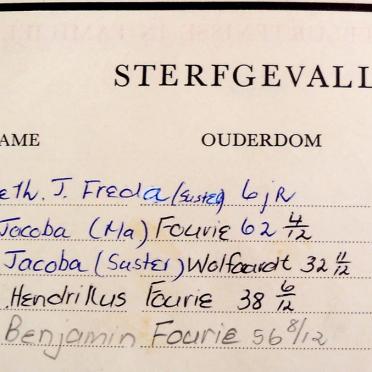 STERFGEVALL
AME OUDERDOM
eth. J. Freda (suster) 6 jr
Jacoba (Ma) Fourie 62 4/12
Jacoba (Suster) Wolfaardt 32 11/12
Hendrikus Fourie 38 6/12
Benjamin Fourie 56 8/12